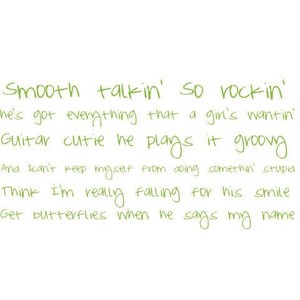 Smooth talkin' so rockin'
he's got everything that a girl's wantin'
Guitar cutie he plays it groovy
And I can't keep myself from doing somethin' stupid
Think I'm really falling for his smile
Get butterflies when he says my name